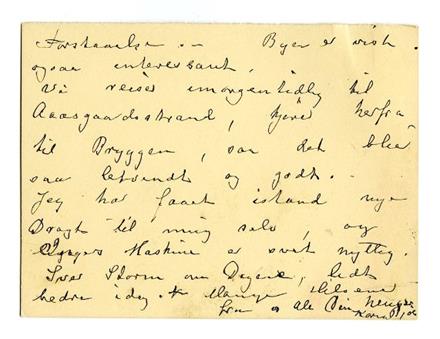 Forstaaelse. — Byen er vist
ogsaa interessant,
Vi reiser imorgentidlig til
Aaasgaardsstrand, kjøre herfra
til Bryggen, saa det blir
saa letvendt og godt. —
Jeg har faaet istand nye
Dragt til mig selv, og
Maskine er svært nyttig.
Svær Storm om Dagene, lidt
bedre idag. Mange Hilsener
fra os alle Din